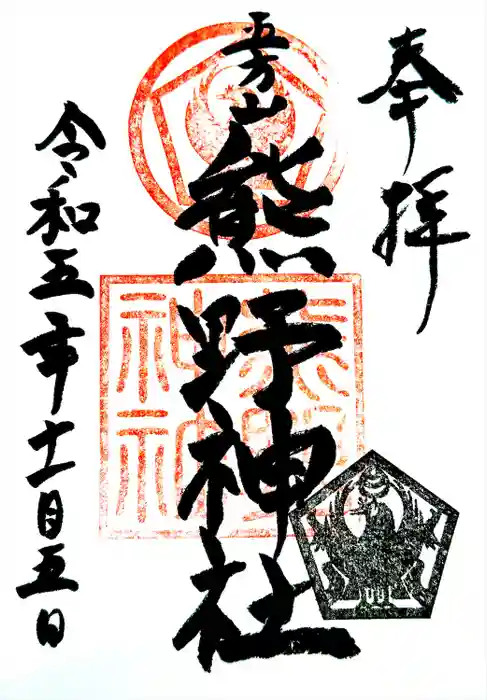 奉拝
五方山
熊野神社
令和五年十一月五日